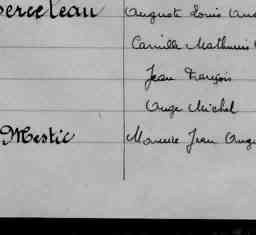 berceleau Auguste Louis Au
Camille Mathurin
Jean François
Ange Michel
Mestic Maurice Jean Aug